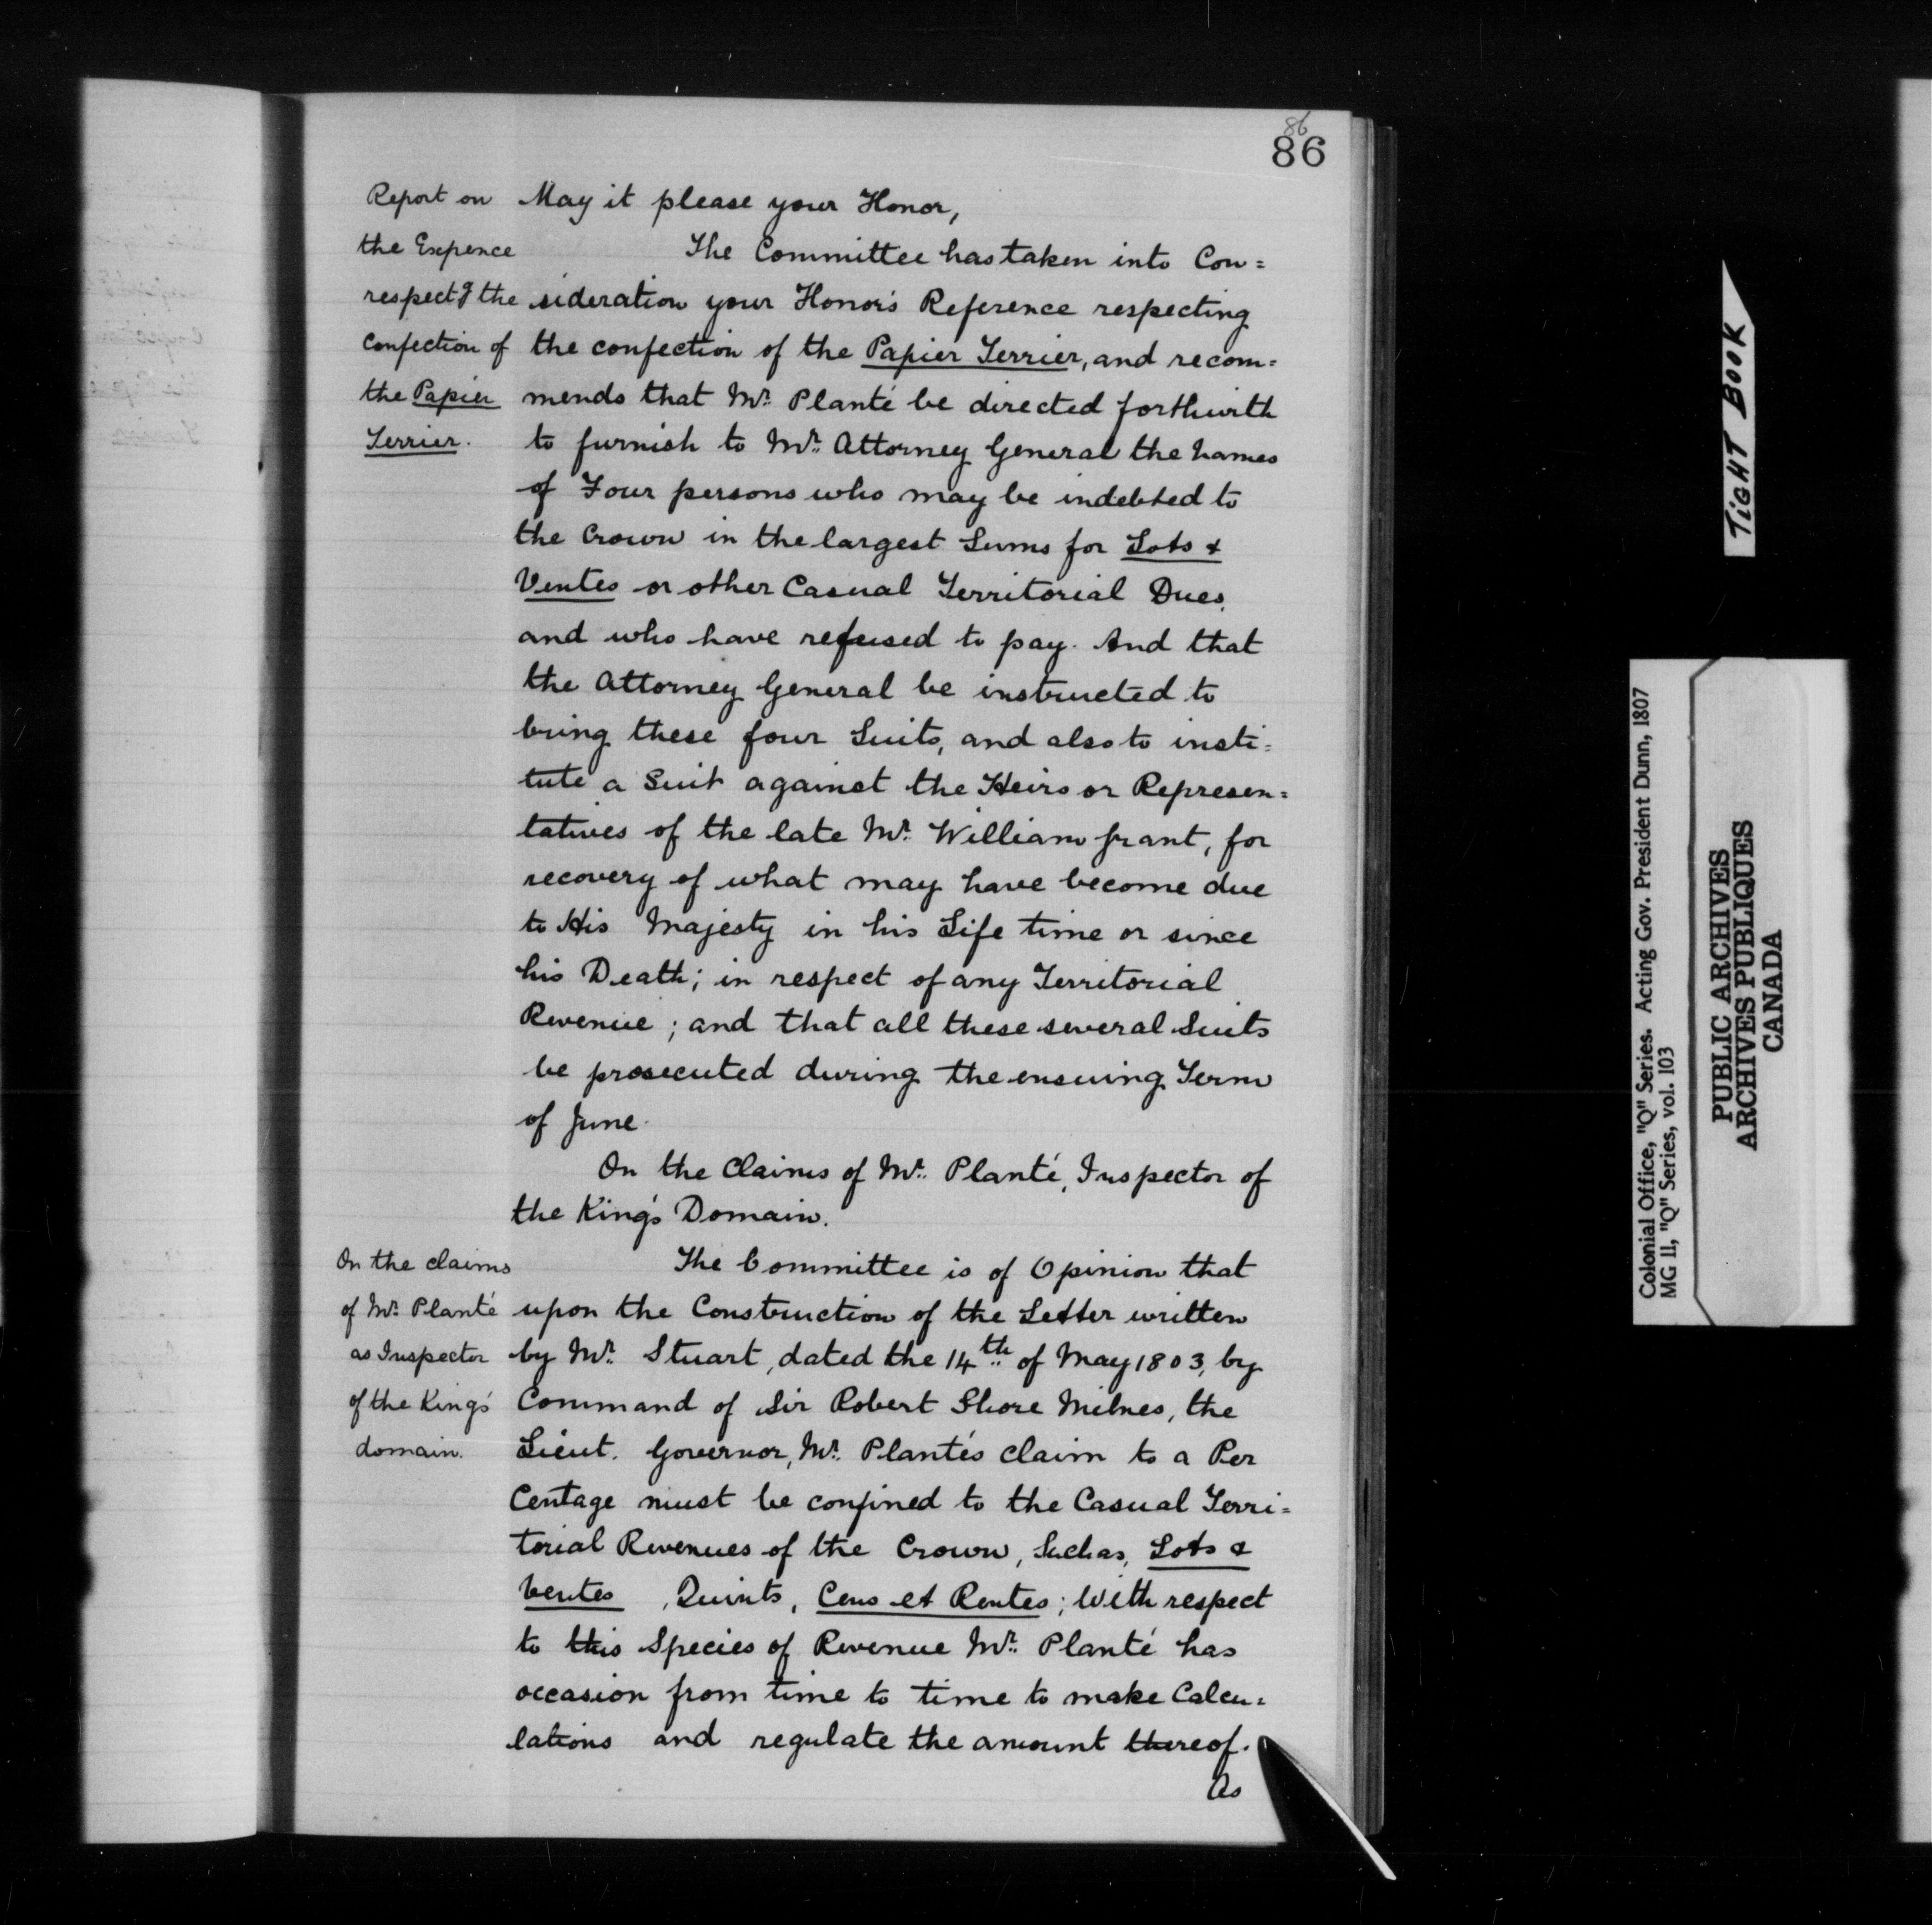 86
86
Report on
the Expence
respectg the
confection of
the Papier
Terrier.
May it please your Honor,
The Committee has taken into Con=
sideration your Honor's Reference respecting
the confection of the Papier Terrier, and recom=
mends that Mr. Planté be directed forthwith
to furnish to Mr. Attorney General the names
of Four persons who may be indebted to
the Crown in the largest Sums for Lots &
Ventes or other Casual Territorial Dues,
and who have refused to pay. And that
the Attorney General be instructed to
bring these four Suits, and also to insti=
tute a Suit against the Heirs or Represen=
tatives of the late Mr. William Grant, for
recovery of what may have become due
to His Majesty in his Life time or since
his Death; in respect of any Territorial
Revenue; and that all these several Suits
be prosecuted during the ensuing Term
of June.
On the Claims of Mr. Planté, Inspector of
the King's Domain.
On the claims
of Mr. Planté
as Inspector
of the King's
domain.
The Committee is of Opinion that
upon the Construction of the Letter written
by Mr. Stuart, dated the 14th of May 1803, by
Command of Sir Robert Shore Milnes, the
Lieut. Governor, Mr. Planté's claim to a Per
Centage must be confined to the Casual Terri=
torial Revenues of the Crown, Such as, Lots &
Ventes, Quints, Cens et Rentes; With respect
to this Species of Revenue Mr. Planté has
occasion from time to time to make Calcu=
lations and regulate the amount thereof.
As
TIGHT BOOK
Colonial Office, "Q" Series. Acting Gov. President Dunn, 1807
MG 11, "Q" Series, vol. 103
PUBLIC ARCHIVES
ARCHIVES PUBLIQUES
CANADA